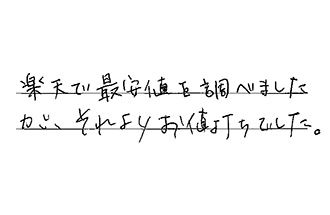 楽天で最安値を調べました
が、それよりお値打ちでした。